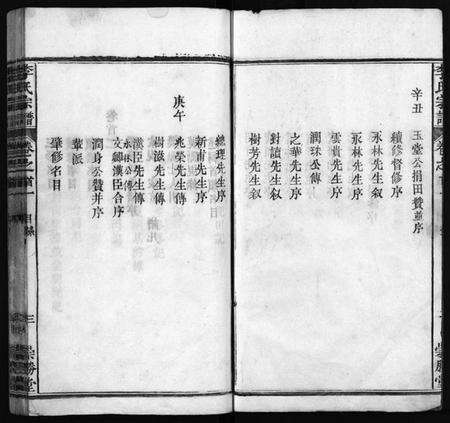 辛丑
玉堂公捐田贊並序
續修督修序
永林先生叙
永林先生序
雲貴先生序
潤珠公傳
之華先生序
對讀先生叙
樹芳先生叙
庚午
總理先生序
新甫先生序
兆榮先生序
樹滋先生傳
永林公傳
漢臣先生傳
文卿漢臣合序
潤身公贊并序
葦派
肇修名目
李氏宗譜
卷之首
目錄
三
崇勝堂